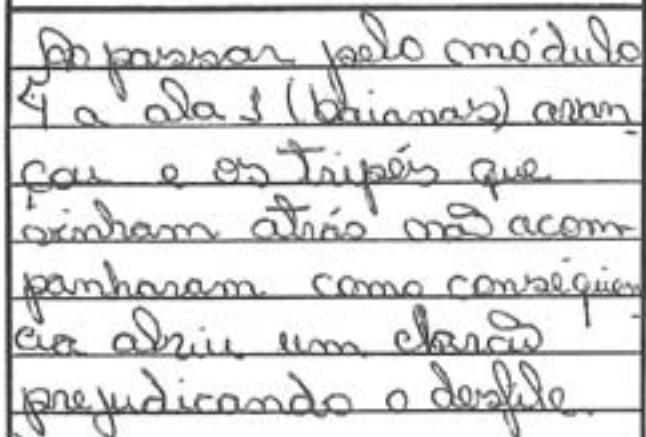 Ao passar pelo módulo
4 a ala 1 (baianas) avan
çou e os tripés que
vinham atrás não acom
panharam como conseqüên
cia abriu um clarão
prejudicando o desfile.